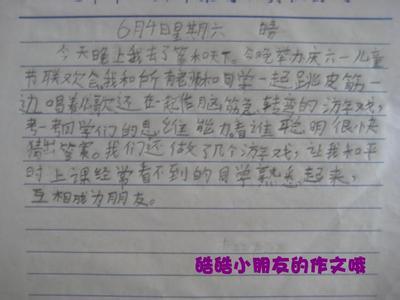 6月4日星期六 晴
今天晚上我去了笨和天下。今晚举办庆六一儿童
节联欢会我和所有老师和同学一起跳皮筋一
边唱着儿歌还在一起作脑筋急转弯的游戏,
考一考同学们的思维能力看谁聪明很快
猜出答案。我们还做了几个游戏,让我和平
时上课经常看不到的同学熟悉起来,
互相成为朋友。
皓皓小朋友的作文哦